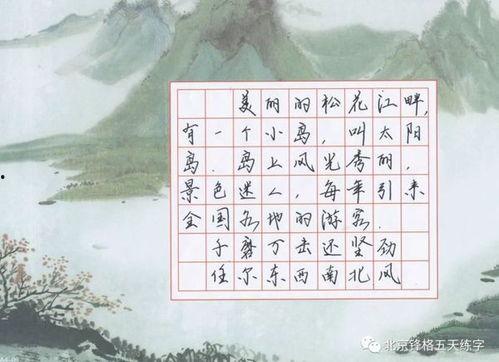 美丽的松花江畔，
有一个小岛，叫太阳
岛．岛上风光秀丽，
景色迷人，每年引来
全国各地的游客．
千磨万击还坚劲
任尔东西南北风
北京锋格五天练字